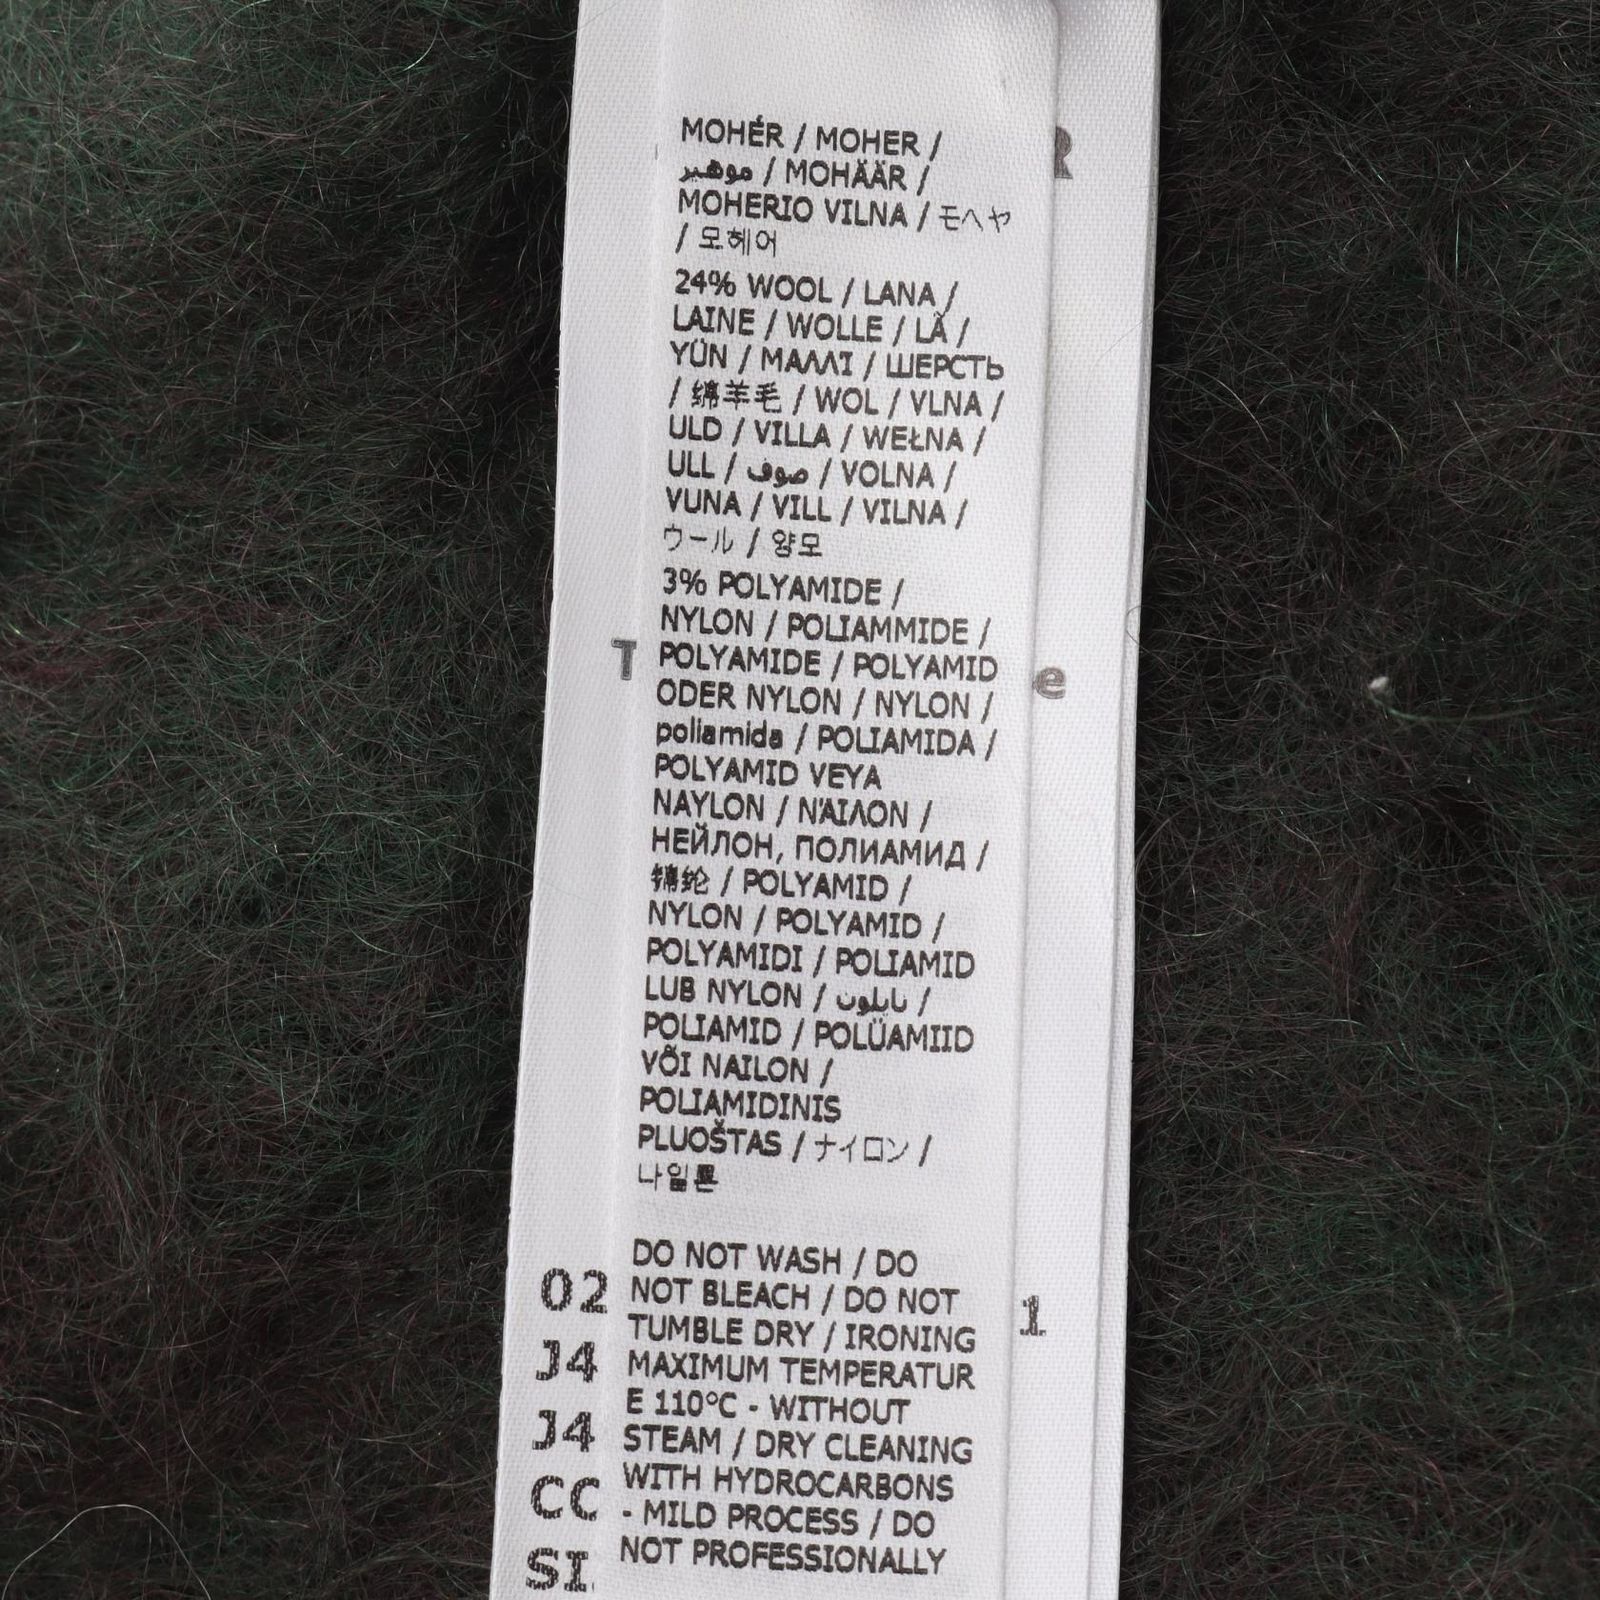 MOHÉR / MOHER /
موهير / MOHÄÄR /
MOHERIO VILNA / モヘヤ
/ 모헤어
24% WOOL / LANA /
LAINE / WOLLE / LÃ /
YÜN / ΜΑΛΛΙ / ШЕРСТЬ
/ 绵羊毛 / WOL / VLNA /
ULD / VILLA / WEŁNA /
ULL / صوف / VOLNA /
VUNA / VILL / VILNA /
ウール / 양모
3% POLYAMIDE /
NYLON / POLIAMMIDE /
POLYAMIDE / POLYAMID
ODER NYLON / NYLON /
poliamida / POLIAMIDA /
POLYAMID VEYA
NAYLON / ΝΆΙΛΟΝ /
НЕЙЛОН, ПОЛИАМИД /
锦纶 / POLYAMID /
NYLON / POLYAMID /
POLYAMIDI / POLIAMID
LUB NYLON / نايلون /
POLIAMID / POLÜAMIID
VÕI NAILON /
POLIAMIDINIS
PLUOŠTAS / ナイロン /
나일론
DO NOT WASH / DO
NOT BLEACH / DO NOT
TUMBLE DRY / IRONING
MAXIMUM TEMPERATUR
E 110°C - WITHOUT
STEAM / DRY CLEANING
WITH HYDROCARBONS
- MILD PROCESS / DO
NOT PROFESSIONALLY
R
T
e
02
1
J4
J4
CC
SI